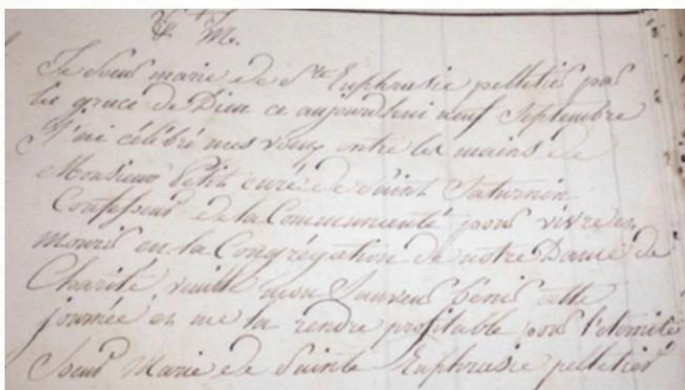 V. † J.
M.
Je Soeur marie de Ste Euphrasie pelletier par
la grace de Dieu ce aujourdhui neuf Septembre
J'ai célébré mes voeux entre les mains de
Monsieur Petit curé de Saint Saturnin
Confesseur de la Communauté pour vivre et
mourir en la Congrégation de notre Dame de
Charité veuille mon Sauveur bénir cette
journée et me la rendre profitable pour l'éternité
Soeur Marie de Sainte Euphrasie pelletier